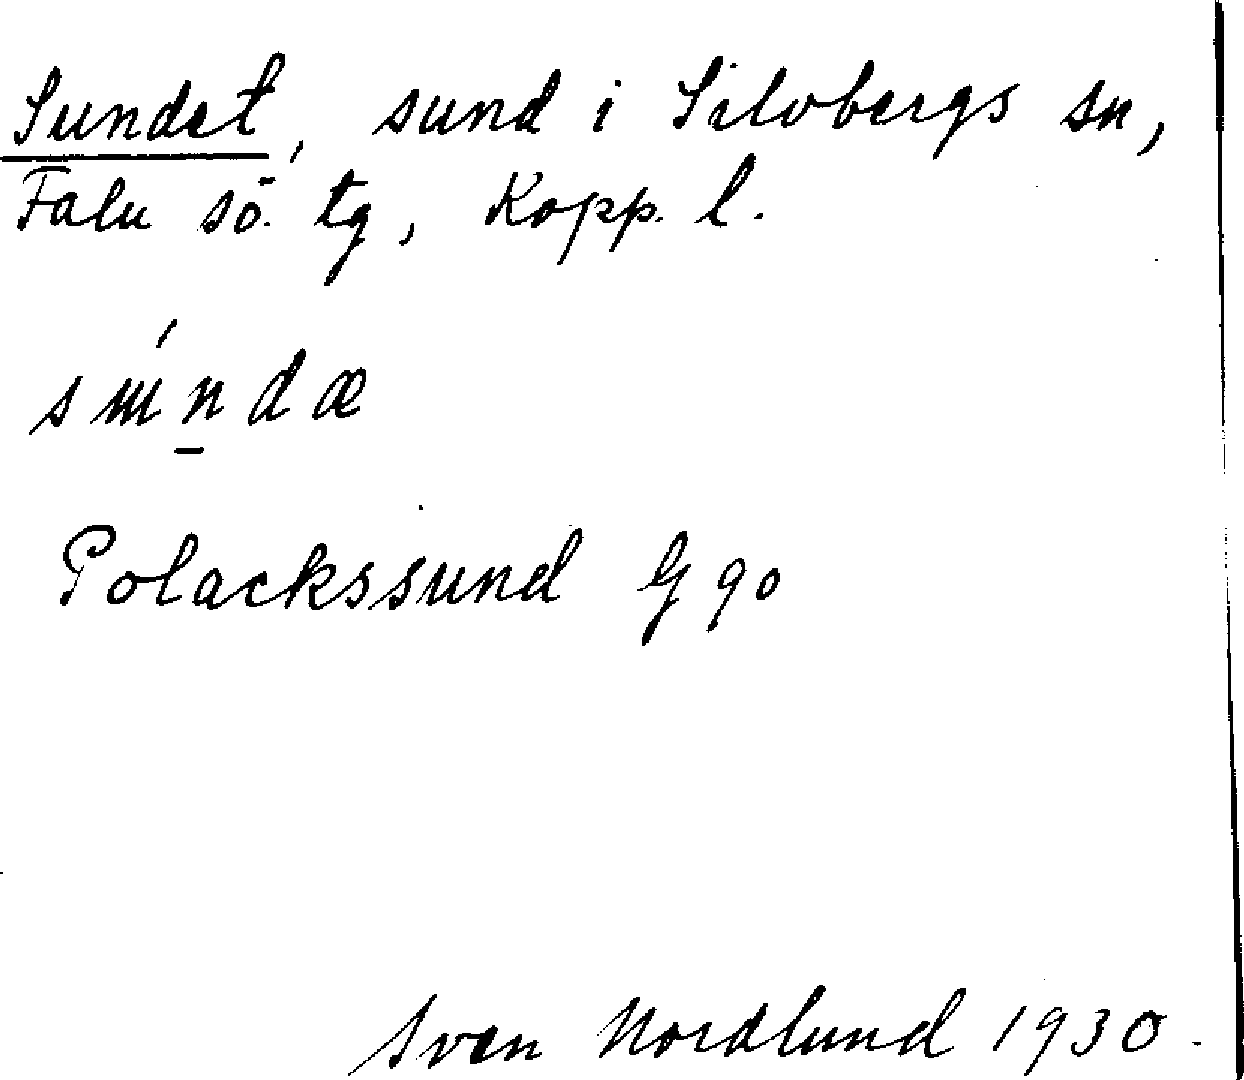 Sundet, sund i Silvbergs sn,
Falu sö. tg, Kopp. l.
Polackssund G 90
Sven Nordlund 1930.